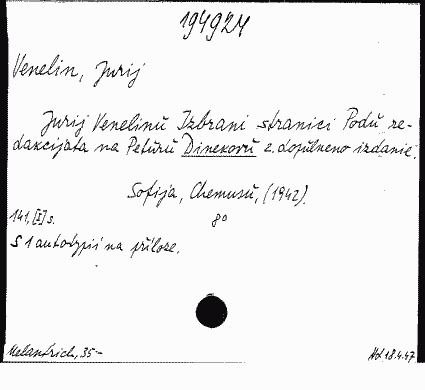 194924
Venelin, Jurij
Jurij Venelinŭ Izbrani stranici Podŭ re-
dakcijata na Petŭrŭ Dinekovŭ 2. dopŭlneno izdanie.
Sofija, Chemusŭ, (1942).
141, [I] s. 8°
S 1 autotypii na příloze.
Melantrich, 35.-
Hd 18.4.47